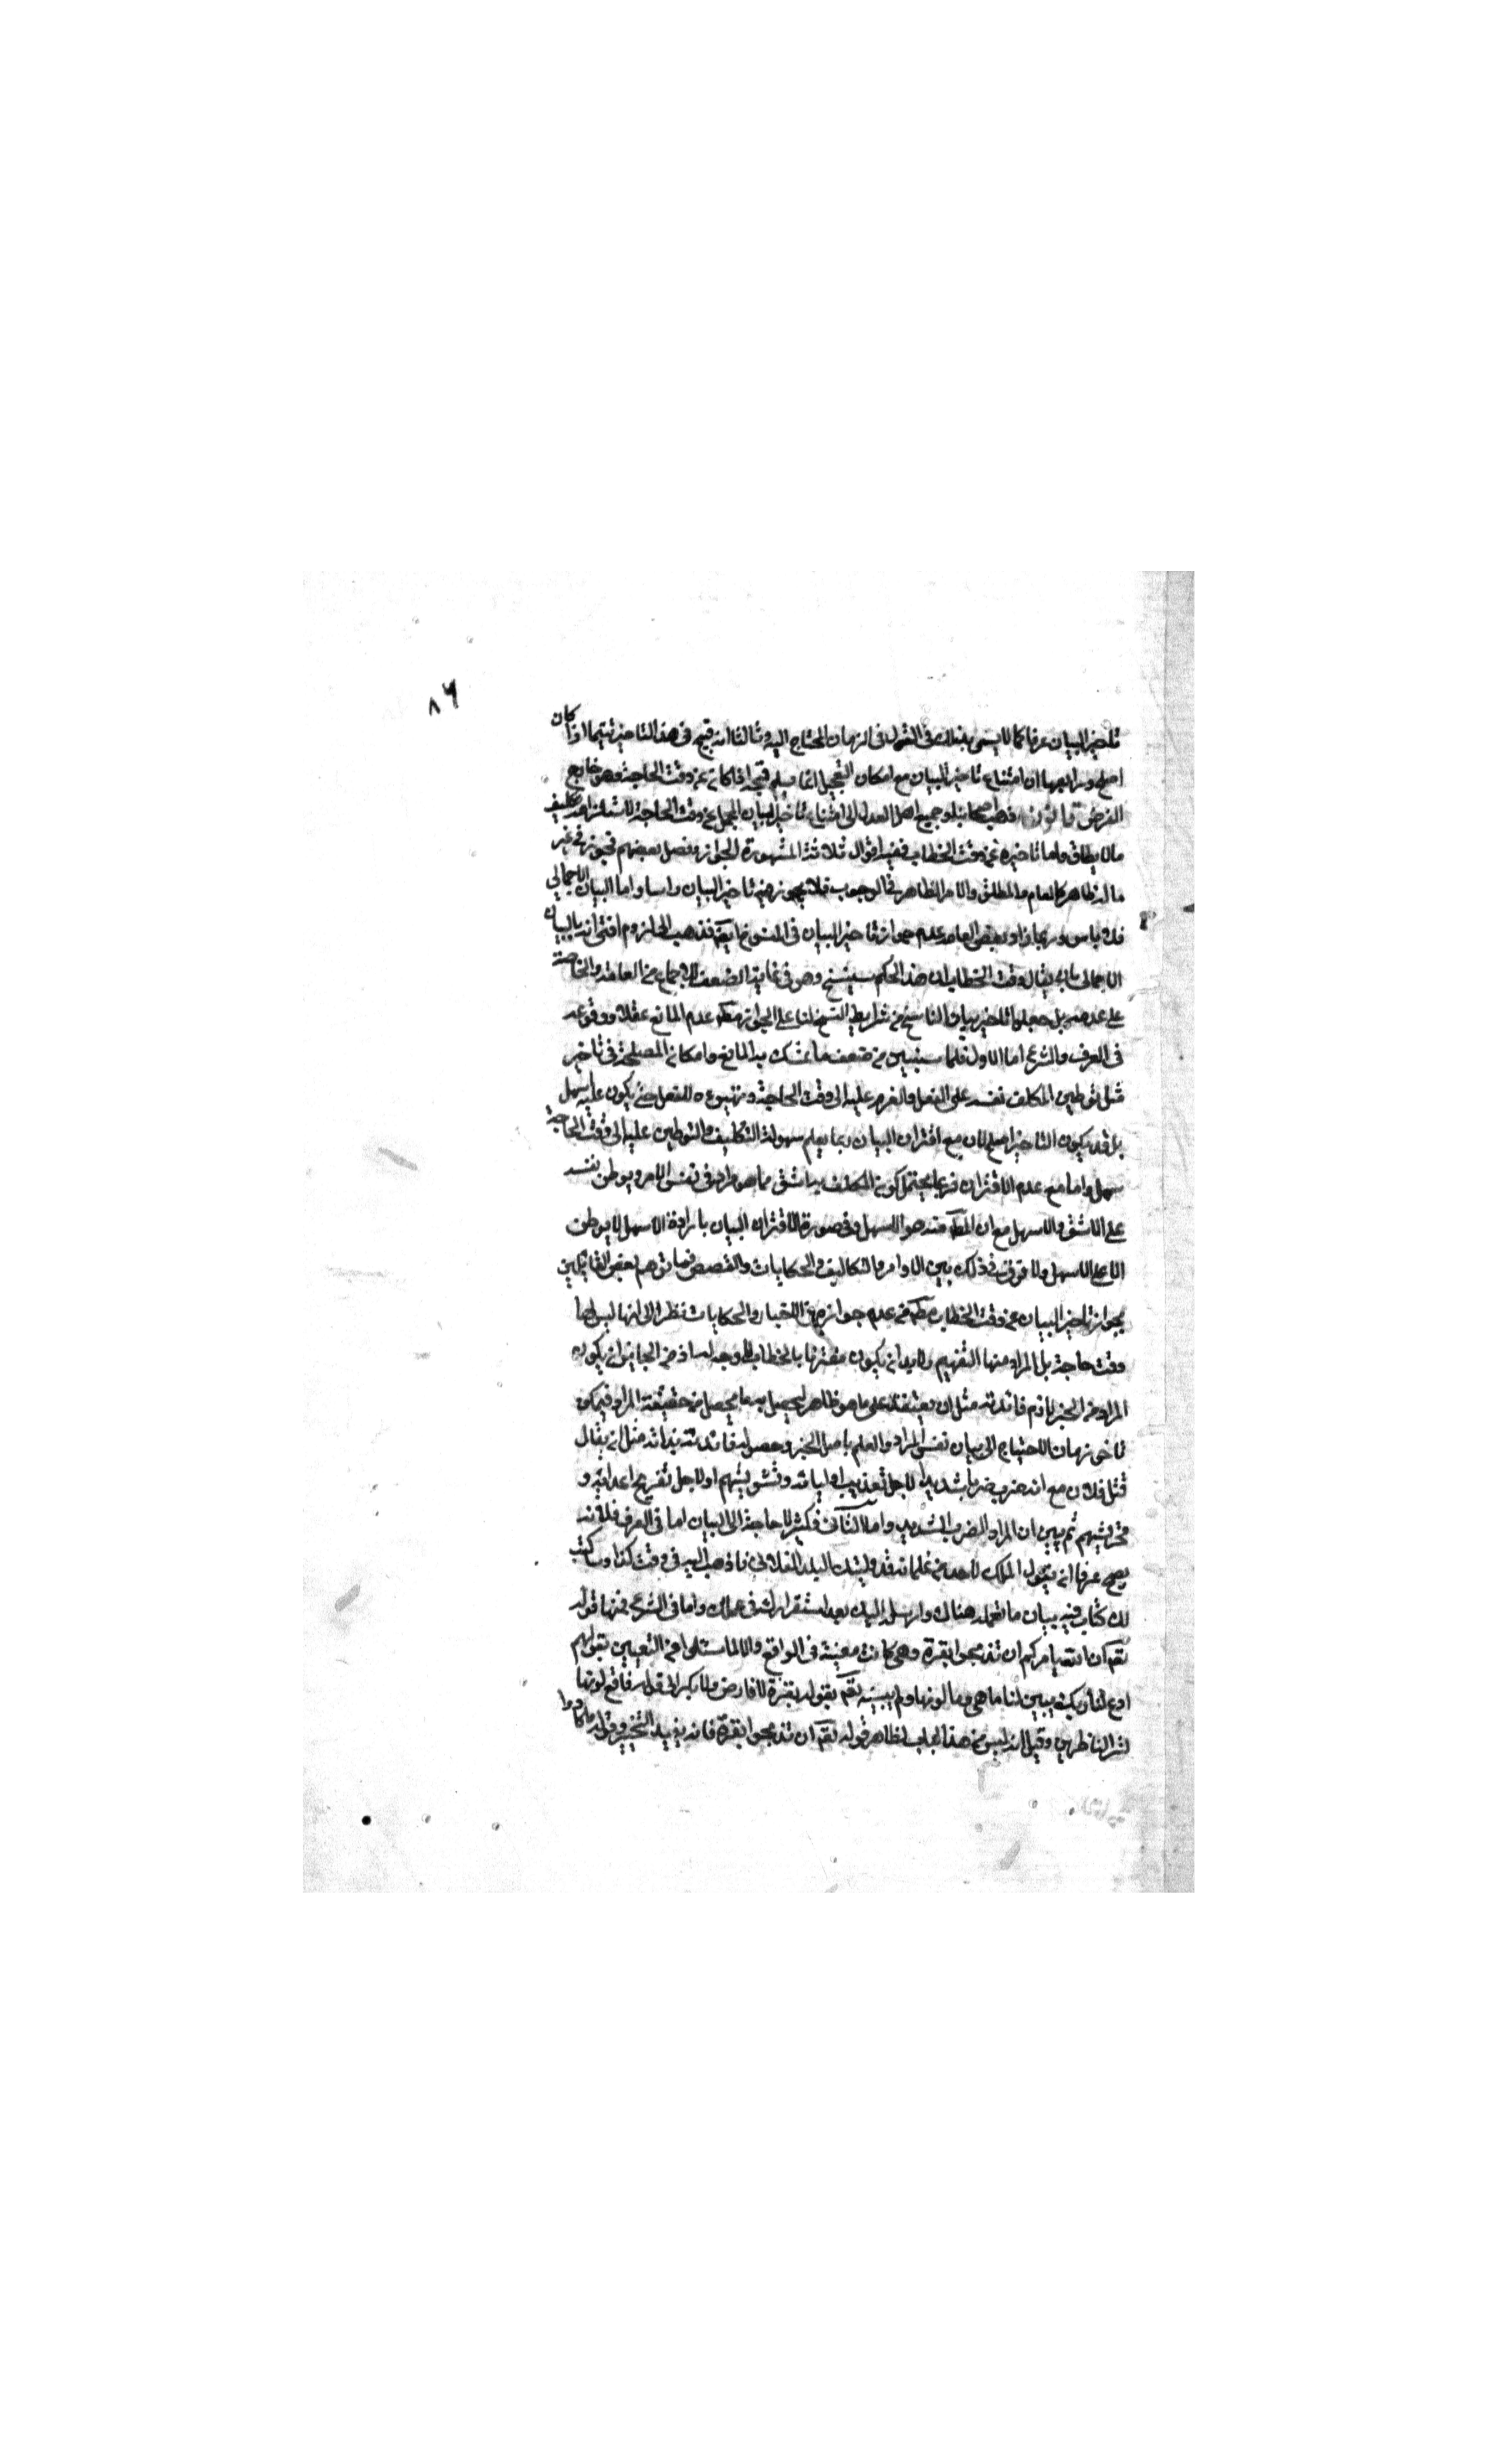 ٨٦
تاخير البيان عرفا كما لا يسمى بذلك في الشمول في الزمان المحتاج اليه وثالثا انه قبيح في هذا التاخير سيما اذا كان
اصلح ورابعها ان امتناع تاخير البيان مع امكان التعجيل انما يسلم قبحه اذا كان عن وقت الحاجة وهو خارج
الفرض قانون ذهب اصحابنا وجميع اهل العدل الى امتناع تاخير بيان المجمل عن وقت الحاجة لاستلزامه تكليف
ما لا يطاق واما تاخيره عن وقت الخطاب ففيه اقوال ثلاثة المشهورة الجواز وفصل بعضهم فجوز في غير
ما له ظاهر كالعام والمطلق والامر الظاهر في الوجوب فلا يجوز فيه تاخير البيان راسا واما البيان الاجمالي
فلا باس وربما زاد بعض العامة عدم جواز تاخير البيان في المنسوخ ايضا فذهب الى لزوم اقترانه بالبيان
الاجمالي بان يقال وقت الخطاب ان هذا الحكم سينسخ وهو في غاية الضعف للاجماع من العامة والخاصة
على عدمه بل جعلوا تاخير بيان الناسخ من شرايط النسخ لنا على الجواز مط عدم المانع عقلا ووقوعه
في العرف والشرع اما الاول فلما سنبين من ضعف ما تمسك به المانع وامكان المصلحة في تاخير
مثل توطين المكلف نفسه على الفعل والعزم عليه الى وقت الحاجة وتهيوءه للفعل حتى يكون عليه اسهل
بل قد يكون التاخير اصلح لان مع اقتران البيان ربما يعلم سهولة التكليف والتوطين عليه الى وقت الحاجة
سهل واما مع عدم الاقتران فربما يحتمل كون المكلف به اشق مما هو مراد في نفس الامر ويوطن نفسه
على الاشق والاسهل مع ان المط منه هو الاسهل وفي صورة الاقتران البيان بارادة الاسهل لا يوطن
الا على الاسهل ولا فرق في ذلك بين الاوامر والتكاليف والحكايات والقصص فما توهم بعض القائلين
بجواز تاخير البيان عن وقت الخطاب مط من عدم جوازه في الاخبار والحكايات نظرا الى انها ليس لها
وقت حاجة بل المراد منها التفهيم ولا بد ان يكون مقترنا بالخطاب لا وجه له اذ من الجايز ان يكون
المراد من الخبر لازم فائدته مثل ان يعتقد على ما هو ظاهر ليحصل به ما يحصل من حقيقة المراد فيمكن
تاخر زمان الاحتياج الى بيان نفس المراد والعلم باصل الخبر وحصول فائدته بذاته مثل ان يقال
قتل فلان مع انه ضرب ضربا شديدا لاجل تعذيب اوليائه وتشويشهم او لاجل تفريح اعدائه و
تحريشهم ثم يبين ان المراد الضرب الشديد واما الثاني فكثير لا حاجة الى البيان اما في العرف فلانه
يصح عرفا ان يقول الملك لاحد من غلمانه قد وليتك البلد الفلاني فاذهب اليه في وقت كذا وساكتب
لك كتابا فيه بيان ما تعمله هناك وارسله اليك بعد استقرارك في عملك واما في الشرع فمنها قوله
تعم ان الله يامركم ان تذبحوا بقرة وهي كانت معينة في الواقع والا لما سئلوا عن التعيين بقولهم
ادع لنا ربك يبين لنا ما هي وما لونها ولم يبينه تعم بقوله بقرة لا فارض ولا بكر الى قوله فاقع لونها
تسر الناظرين وقيل انه ليس من هذا الباب لظاهر قوله تعم ان تذبحوا بقرة فانه يفيد التخيير وقوله وما كادوا